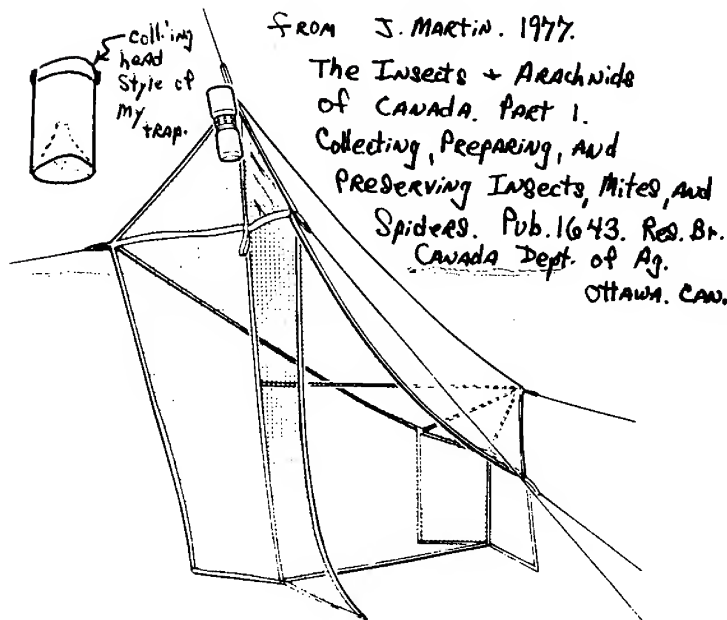 coll'ing
head
Style of
My trap.
from J. Martin. 1977.
The Insects + Arachnids
of Canada. Part 1.
Collecting, Preparing, and
Preserving Insects, Mites, and
Spiders. Pub. 1643. Res. Br.
Canada Dept. of Ag.
Ottawa. Can.